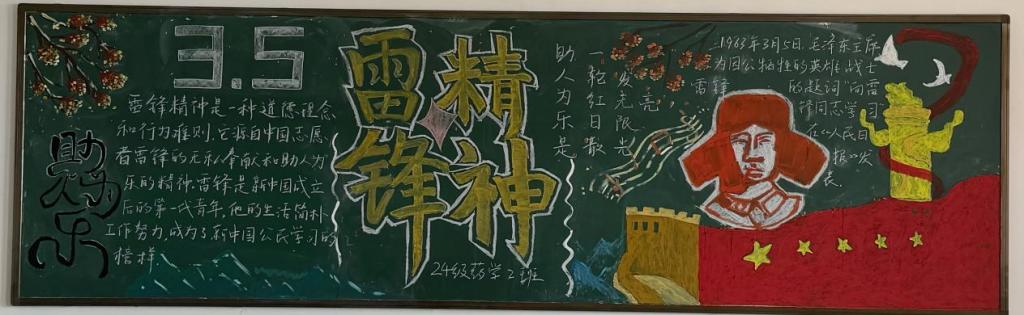 3.5
雷锋精神是一种道德理念
和行为准则,它源自中国志愿
者雷锋的无私奉献和助人为
乐的精神.雷锋是新中国成立
后的第一代青年,他的生活简朴
工作努力,成为了新中国公民学习的
榜样
助人为乐
雷锋
精神
24级药学2班
助人为乐是
一轮红日散
发无限光
亮,
1963年3月5日,毛泽东主席
为因公牺牲的英雄战士
雷锋的题词“向雷
锋同志学习
在《人民日
报》发
表.